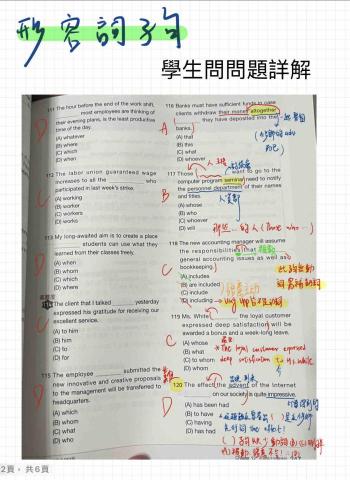 形容詞子句
學生問問題詳解
111 The hour before the end of the work shift,
most employees are thinking of
their evening plans, is the least productive
time of the day.
(A) whatever
(B) where
(C) which
(D) when
D
112 The labor union guaranteed wage
increases to all the who
participated in last week's strike.
(A) working
(B) worker
(C) workers
(D) works
C
113 My long-awaited aim is to create a place
students can use what they
learned from their classes freely.
(A) when
(B) whom
(C) which
(D) where
D
The client that I talked yesterday
expressed his gratitude for receiving our
excellent service.
(A) to him
(B) him
(C) to
(D) for
C
115 The employee submitted the
new innovative and creative proposals
to the management will be transferred to
headquarters.
(A) which
(B) whom
(C) what
(D) who
D
116 Banks must have sufficient funds in case
clients withdraw their money altogether
they have deposited into the
banks.
(A) that
(B) this
(C) what
(D) whoever
A
117 Those want to go to the
computer program seminar need to notify
the personnel department of their names
and titles.
人資部
(A) whose
(B) who
(C) whoever
(D) will
B
118 The new accounting manager will assume
the responsibilities that
general accounting issues as well as
bookkeeping.
(A) includes
(B) are included
(C) include
(D) including
C
119 Ms. White the loyal customer
expressed deep satisfaction will be
awarded a bonus and a week-long leave.
(A) whose
(B) what
(C) to whom
(D) whom
C
120 The effect the advent of the Internet
on our society is quite impressive.
(A) has been had
(B) to have
(C) having
(D) has had
D
2頁，共6頁